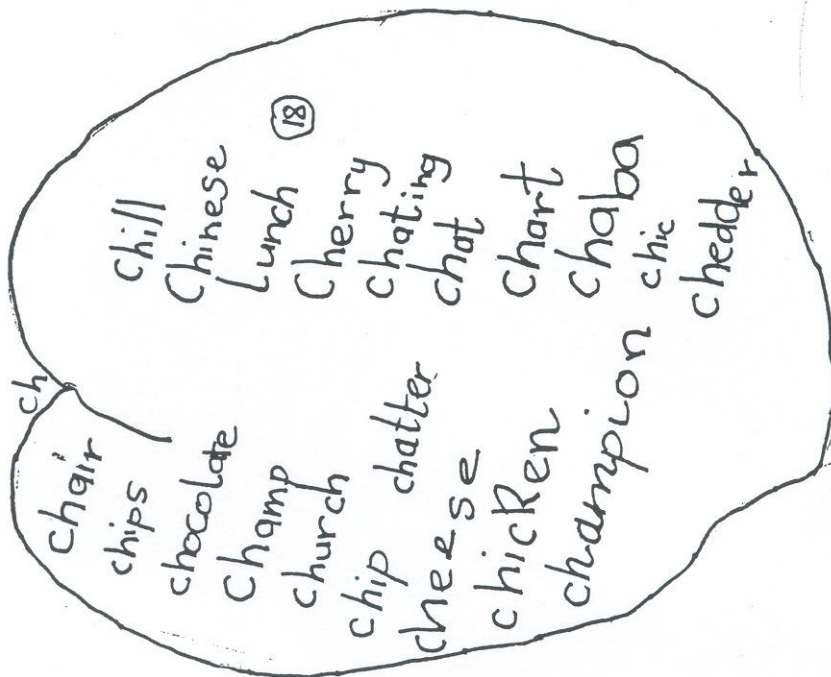 ch
chair
chips
chocolate
Champ
church
chip
chatter
cheese
chicken
champion
Chill
Chinese
Lunch
18
Cherry
chating
chat
chart
chaba
chic
chedder